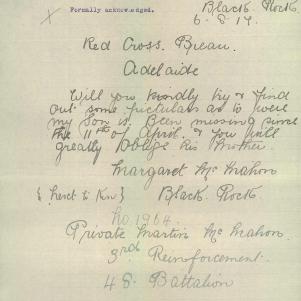 Formally acknowledged.
Black Rock
6.8.17.
Red Cross. Breau.
Adelaide
Will you kindly try & find
out some pirticulars as to were
my Son is. Been missing since
the 11th of April. & you will
greatly oblige his Mother.
Margaret Mc Mahon
{ next to Kn } Black Rock
No. 1964.
Private Martin Mc Mahon.
3rd Reinforcement.
48 Battalion